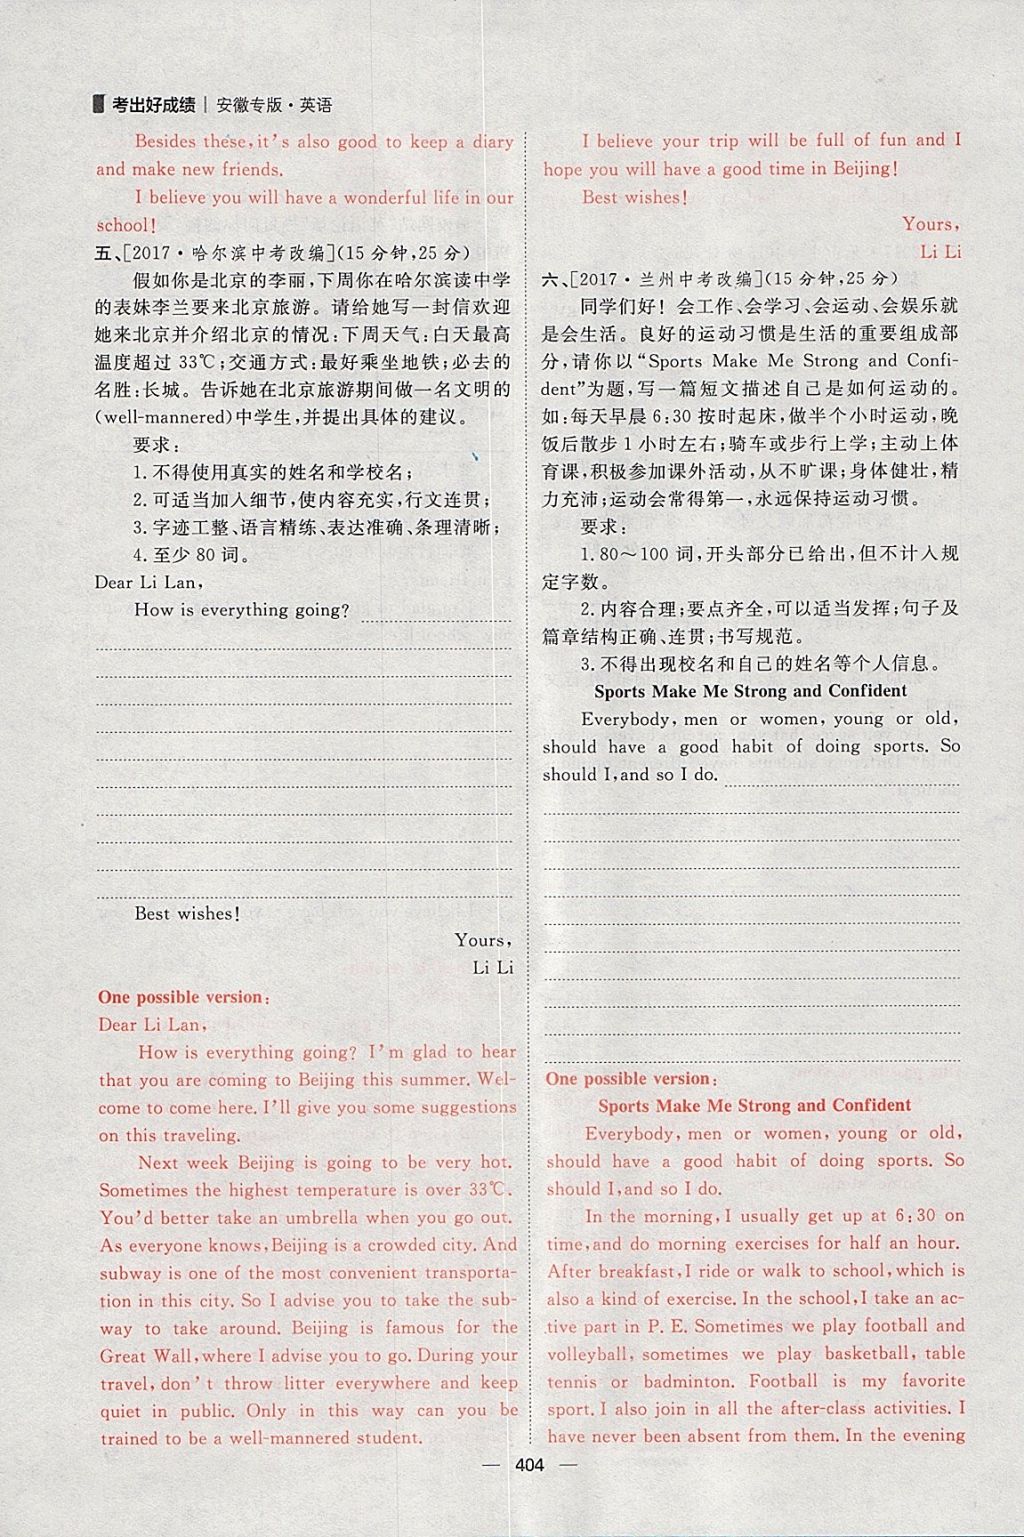 考出好成绩｜安徽专版·英语
Besides these, it's also good to keep a diary
and make new friends.
I believe you will have a wonderful life in our
school!
五、[2017·哈尔滨中考改编](15分钟,25分)
假如你是北京的李丽,下周你在哈尔滨读中学
的表妹李兰要来北京旅游。请给她写一封信欢迎
她来北京并介绍北京的情况:下周天气:白天最高
温度超过33℃;交通方式:最好乘坐地铁;必去的
名胜:长城。告诉她在北京旅游期间做一名文明的
(well-mannered)中学生,并提出具体的建议。
要求:
1.不得使用真实的姓名和学校名;
2.可适当加入细节,使内容充实,行文连贯;
3.字迹工整、语言精练、表达准确、条理清晰;
4.至少80词。
Dear Li Lan,
How is everything going?
Best wishes!
Yours,
Li Li
One possible version:
Dear Li Lan,
How is everything going? I'm glad to hear
that you are coming to Beijing this summer. Wel-
come to come here. I'll give you some suggestions
on this traveling.
Next week Beijing is going to be very hot.
Sometimes the highest temperature is over 33℃.
You'd better take an umbrella when you go out.
As everyone knows, Beijing is a crowded city. And
subway is one of the most convenient transporta-
tion in this city. So I advise you to take the sub-
way to take around. Beijing is famous for the
Great Wall, where I advise you to go. During your
travel, don't throw litter everywhere and keep
quiet in public. Only in this way can you be
trained to be a well-mannered student.
I believe your trip will be full of fun and I
hope you will have a good time in Beijing!
Best wishes!
Yours,
Li Li
六、[2017·兰州中考改编](15分钟,25分)
同学们好!会工作、会学习、会运动、会娱乐就
是会生活。良好的运动习惯是生活的重要组成部
分,请你以“Sports Make Me Strong and Confi-
dent”为题,写一篇短文描述自己是如何运动的。
如:每天早晨6:30按时起床,做半个小时运动,晚
饭后散步1小时左右;骑车或步行上学;主动上体
育课,积极参加课外活动,从不旷课;身体健壮,精
力充沛;运动会常得第一,永远保持运动习惯。
要求:
1.80～100词,开头部分已给出,但不计入规
定字数。
2.内容合理;要点齐全,可以适当发挥;句子及
篇章结构正确、连贯;书写规范。
3.不得出现校名和自己的姓名等个人信息。
Sports Make Me Strong and Confident
Everybody, men or women, young or old,
should have a good habit of doing sports. So
should I, and so I do.
One possible version:
Sports Make Me Strong and Confident
Everybody, men or women, young or old,
should have a good habit of doing sports. So
should I, and so I do.
In the morning, I usually get up at 6:30 on
time, and do morning exercises for half an hour.
After breakfast, I ride or walk to school, which is
also a kind of exercise. In the school, I take an ac-
tive part in P. E. Sometimes we play football and
volleyball, sometimes we play basketball, table
tennis or badminton. Football is my favorite
sport. I also join in all the after-class activities. I
have never been absent from them. In the evening
— 404 —